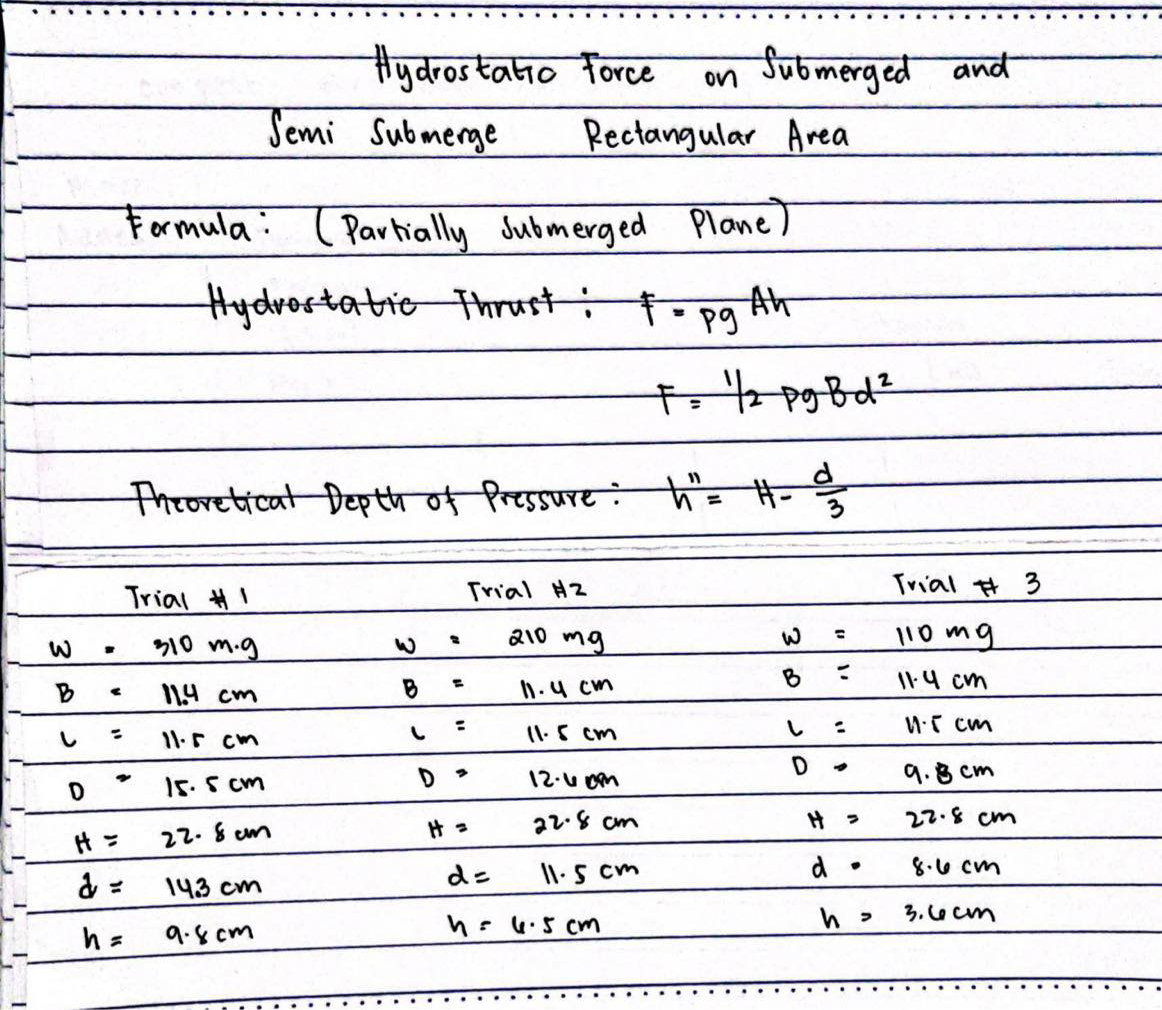 Hydrostatic Force on Submerged and
Semi Submerge Rectangular Area
Formula: (Partially Submerged Plane)
Hydrostatic Thrust: F = ρg Ah
F = 1/2 ρg Bd²
Theoretical Depth of Pressure: h" = H - d/3
Trial #1 Trial #2 Trial # 3
W = 310 m.g W = 210 mg W = 110 mg
B = 11.4 cm B = 11.4 cm B = 11.4 cm
L = 11.5 cm L = 11.5 cm L = 11.5 cm
D = 15.5 cm D = 12.6 cm D = 9.8 cm
H = 22.8 cm H = 22.8 cm H = 22.8 cm
d = 14.3 cm d = 11.5 cm d = 8.6 cm
h = 9.8 cm h = 6.5 cm h = 3.6 cm